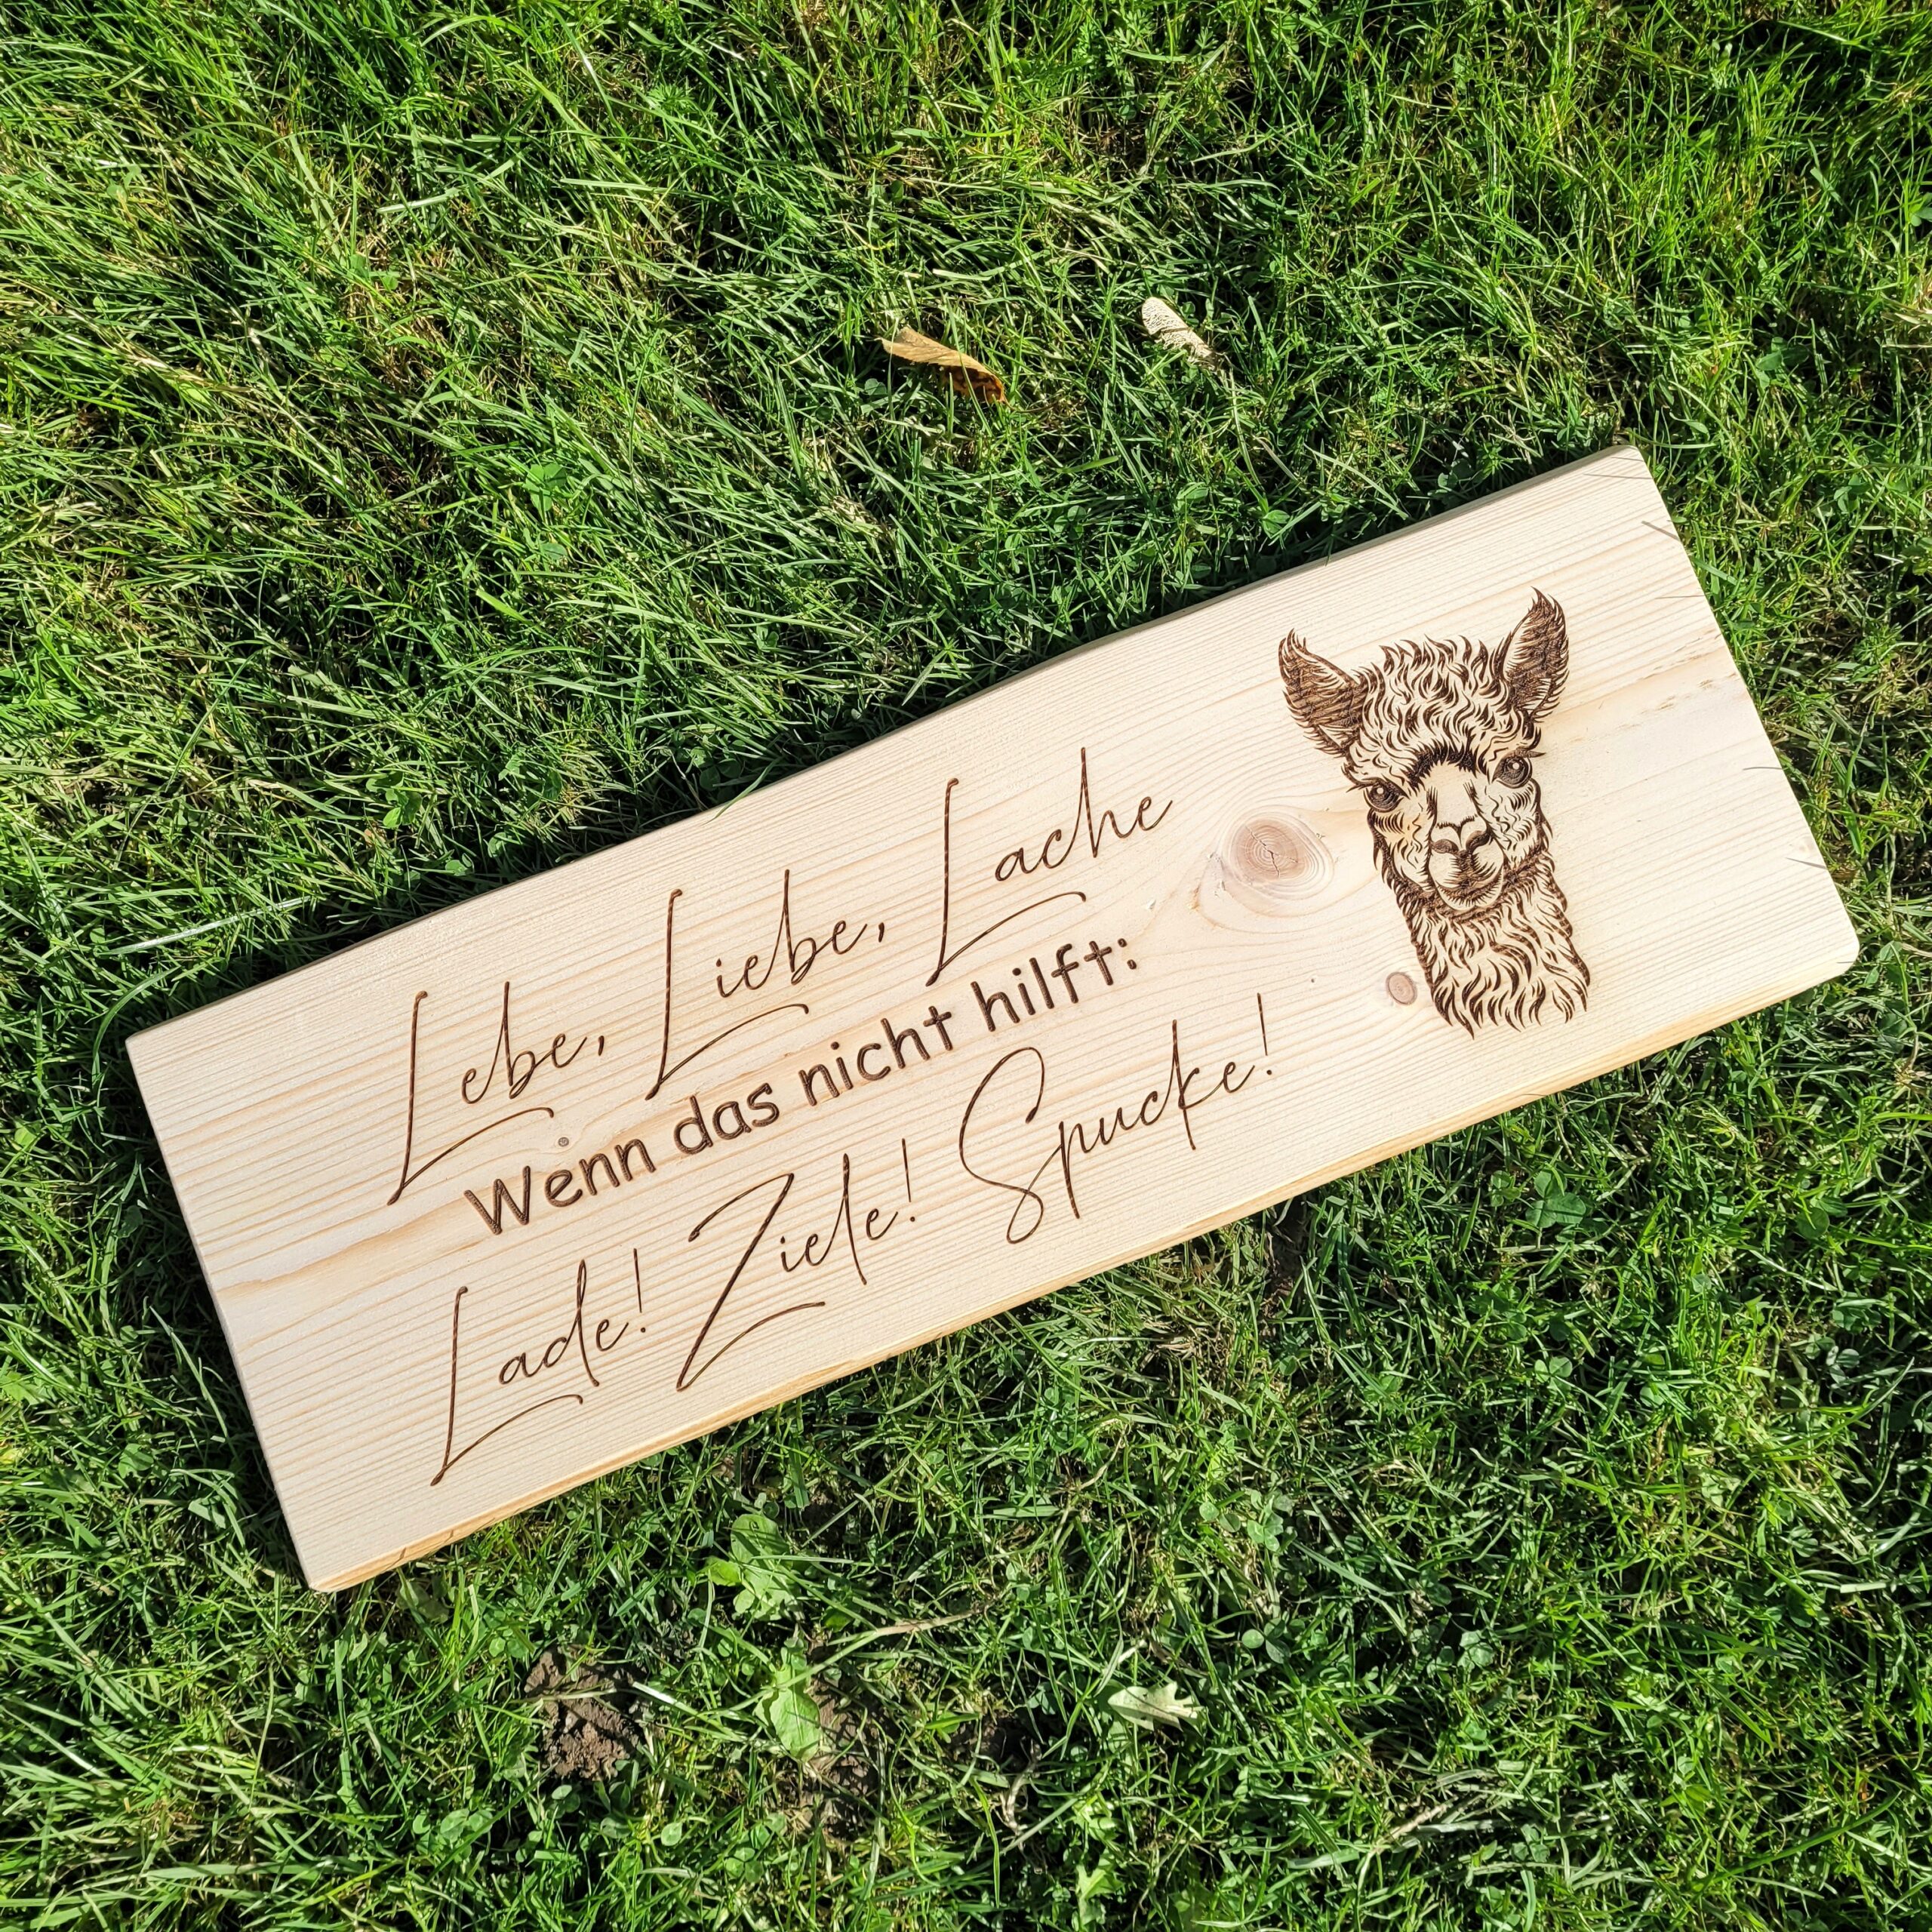 Lebe, Liebe, Lache
Wenn das nicht hilft:
Lade! Ziele! Spucke!